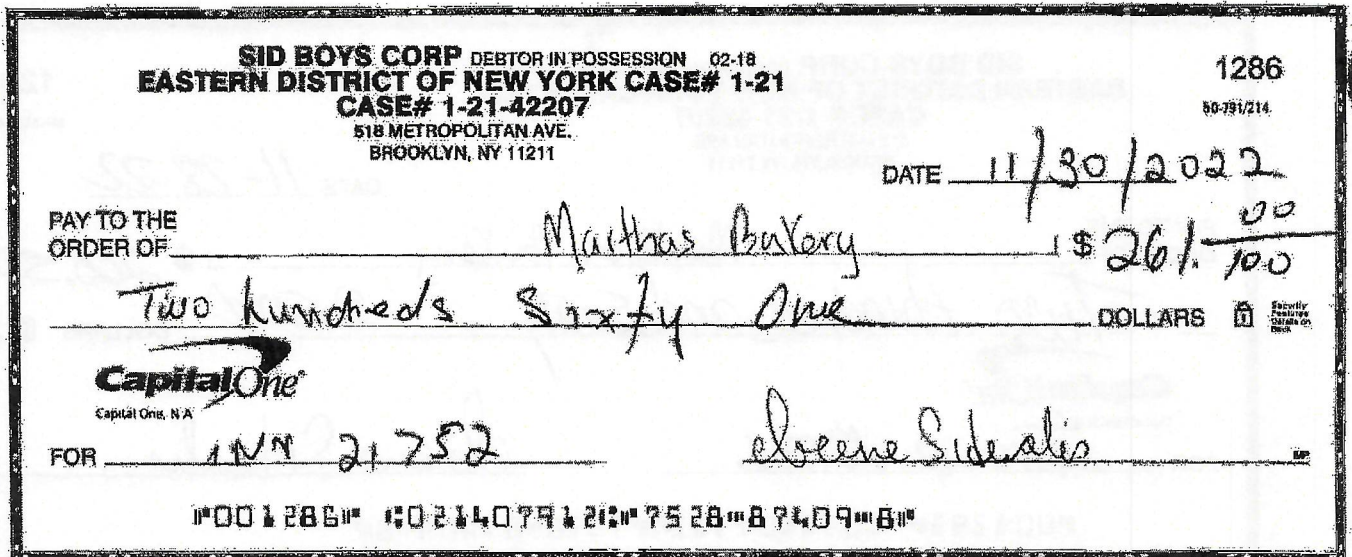 SID BOYS CORP DEBTOR IN POSSESSION 02-18
EASTERN DISTRICT OF NEW YORK CASE# 1-21
CASE# 1-21-42207
518 METROPOLITAN AVE.
BROOKLYN, NY 11211
1286
50-791/214
DATE 11/30/2022
PAY TO THE
ORDER OF Marthas Bakery $ 261. 00/100
Two hundreds Sixty One DOLLARS
Security
Features
Details on
Back
CapitalOne
Capital One, N.A
FOR INV 21752
Sideralis
MP
⑈001286⑈ ⑆021407912⑆⑈7528⑉87409⑉8⑈